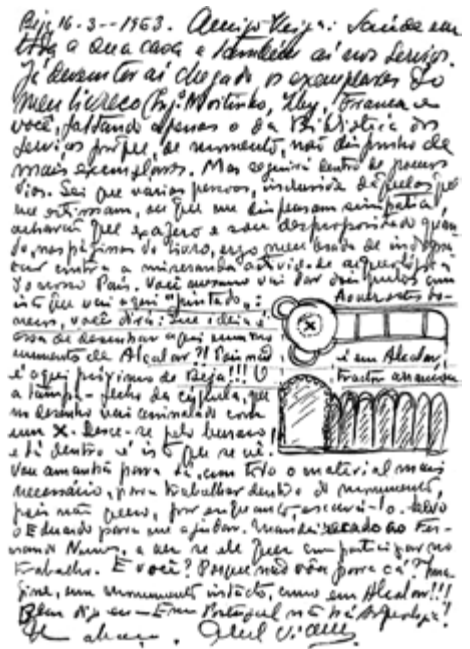 Beja 16-3-1963. Amigo Veiga: Saúde em
toda a sua casa e também aí nos Serviços.
Já devem ter aí chegado os exemplares do
meu livreco (Engº Mortinho, Ilhy, Franca e
você, faltando apenas o da Biblioteca dos
Serviços porque, de momento, não disponho de
mais exemplares. Mas seguirá dentro de poucos
dias. Sei que varias pessoas, inclusivé daquelas que
me estimam, ou que me dispensam simpatia,
acharam que exagero e sou desproporsitado quan-
do, nas páginas do livro, ergo meu brado de
contra a miseranda actividade arqueológica
do nosso País. Você mesmo vai dar dois pulos com
isto que vai aqui "pintado".
você dirá: Que ideia é
essa de desenhar aqui um mo-
numento de Alcalar?! Pois não
é aqui próximo de Beja!!! O
a tampa - fecho da cúpula, que
no desenho vai assinalado com
um X. Desce-se pelo buraco
e lá dentro é isto que se vê.
é em Alcalar,
X
Vou amanhã para lá, com todo o material mais
necessário, para trabalhar dentro do monumento,
pois não quero, por enquanto, escavá-lo. Levo
o Eduardo para me ajudar. Mandei recado ao Fer-
nando Nunes, a ver se ele quer comparticipar no
trabalho. E você? Porque não vem para cá? Ima-
gine, um monumento intacto, como em Alcalar!!!
Bem digo eu - Em Portugal não há Arqueologia!
Um abraço. Abel Viana